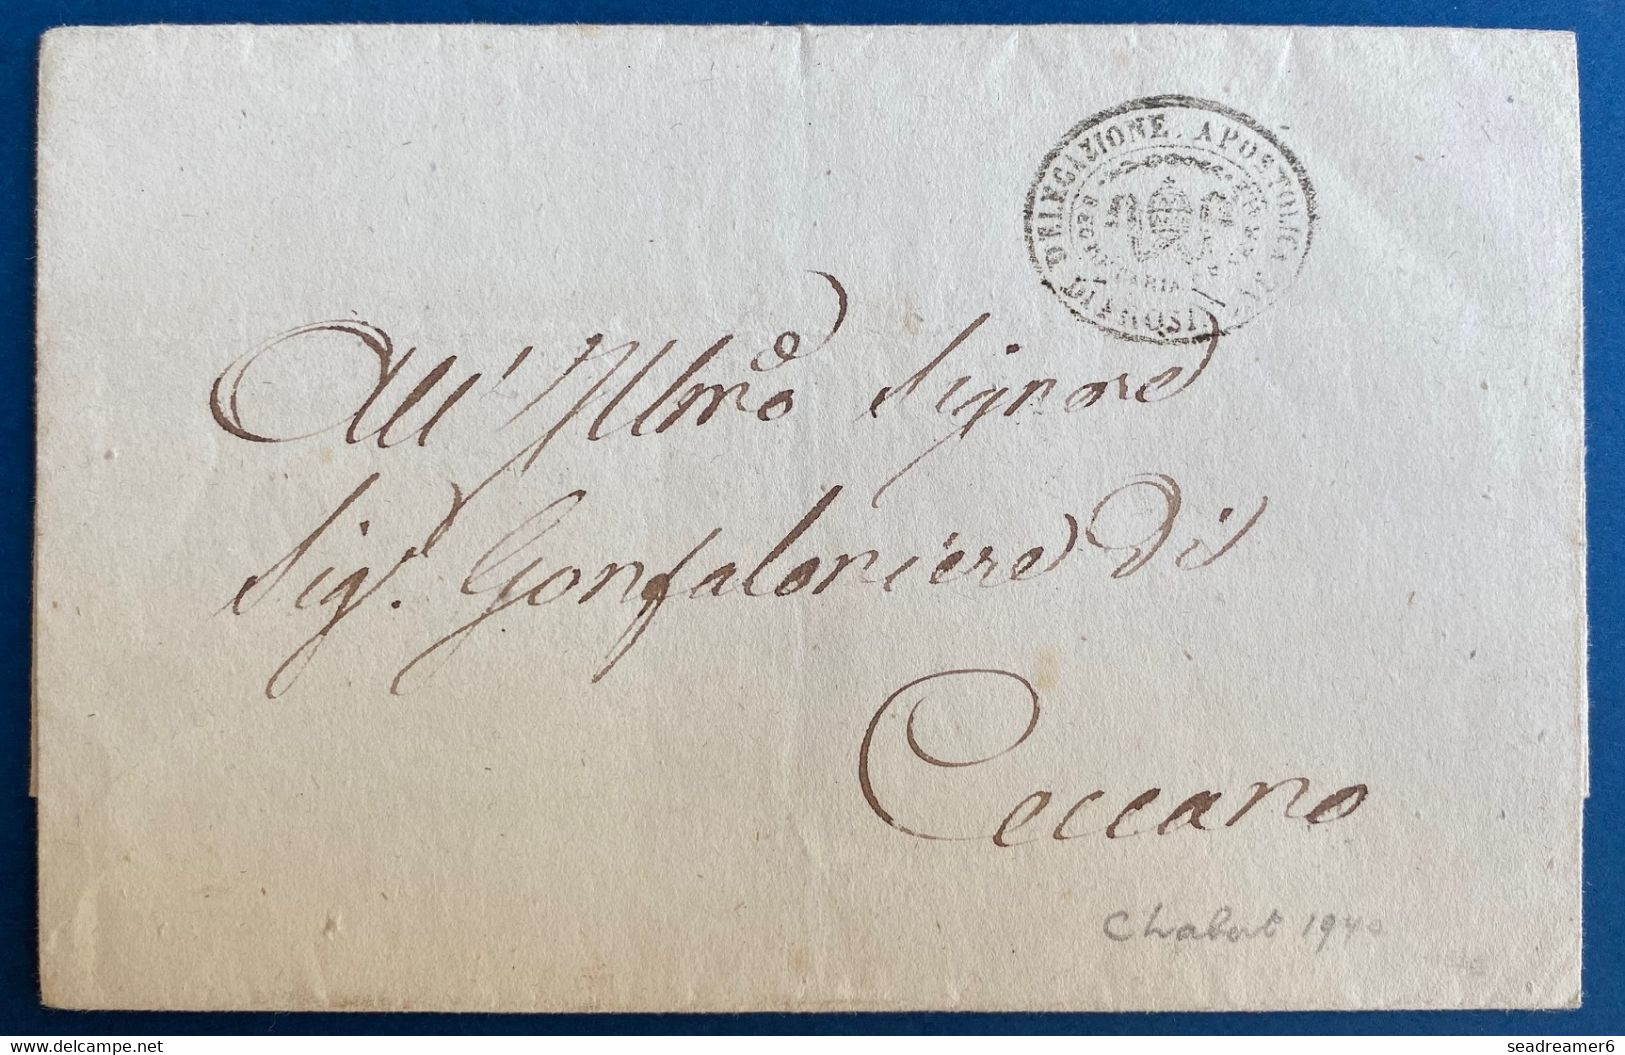 DELEGAZIONE APOSTOLICA
DI FROSI
All' Illmo Signore
Sigr. Gonfaloniere di
Ceccano
Chabert 1940
delcampe.net
seadreamer6